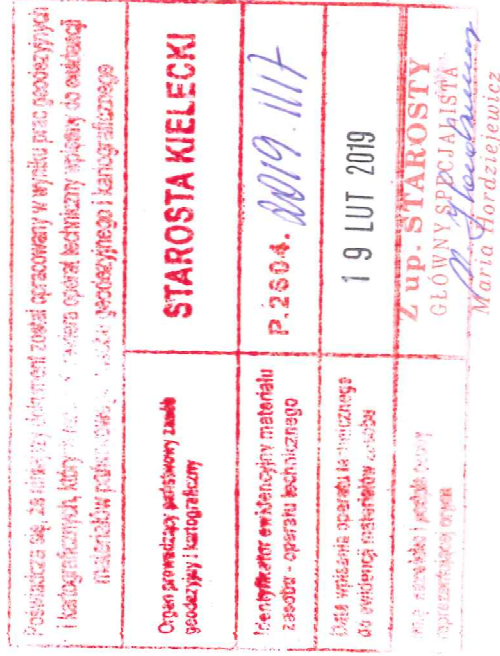 Poświadcza się, że niniejszy dokument został opracowany w wyniku prac geodezyjnych
i kartograficznych, który zawiera operat techniczny wpisany do ewidencji
materiałów geodezyjnego i kartograficznego
Organ prowadzący państwowy zasób
geodezyjny i kartograficzny
STAROSTA KIELECKI
Identyfikator ewidencyjny materiału
zasobu - operatu technicznego
P.2604. 2019.1117
Data wpisania operatu technicznego
do ewidencji materiałów zasobu
19 LUT 2019
imię, nazwisko i podpis osoby
reprezentującej organ
Z up. STAROSTY
GŁÓWNY SPECJALISTA
Maria Hordziejewicz